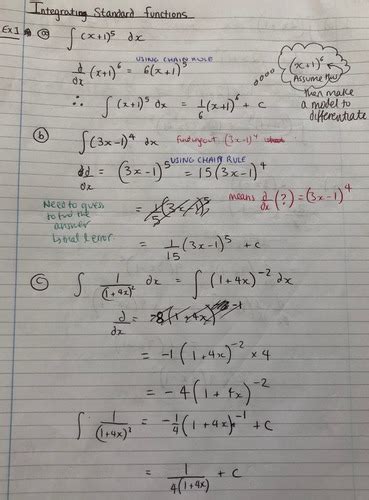 Integrating Standard Functions
Ex 1 (a) ∫ (x+1)⁵ dx
USING CHAIN RULE
d/dx (x+1)⁶ = 6(x+1)⁵
(x+1)⁶
Assume this
then make
a model to
differentiate
∴ ∫ (x+1)⁵ dx = 1/6 (x+1)⁶ + c
(b) ∫ (3x-1)⁴ dx (3x-1)⁴
USING CHAIN RULE
d/dx = (3x-1)⁵ = 15(3x-1)⁴
means d/dx (?) = (3x-1)⁴
Need to guess
to find the
answer
trial & error
= 1/15 (3x-1)⁵ + c
(c) ∫ 1/(1+4x)² dx = ∫ (1+4x)⁻² dx
d/dx =
= -1(1+4x)⁻² × 4
= -4(1+4x)⁻²
∫ 1/(1+4x)² = -1/4 (1+4x)⁻¹ + c
= 1/4(1+4x) + c